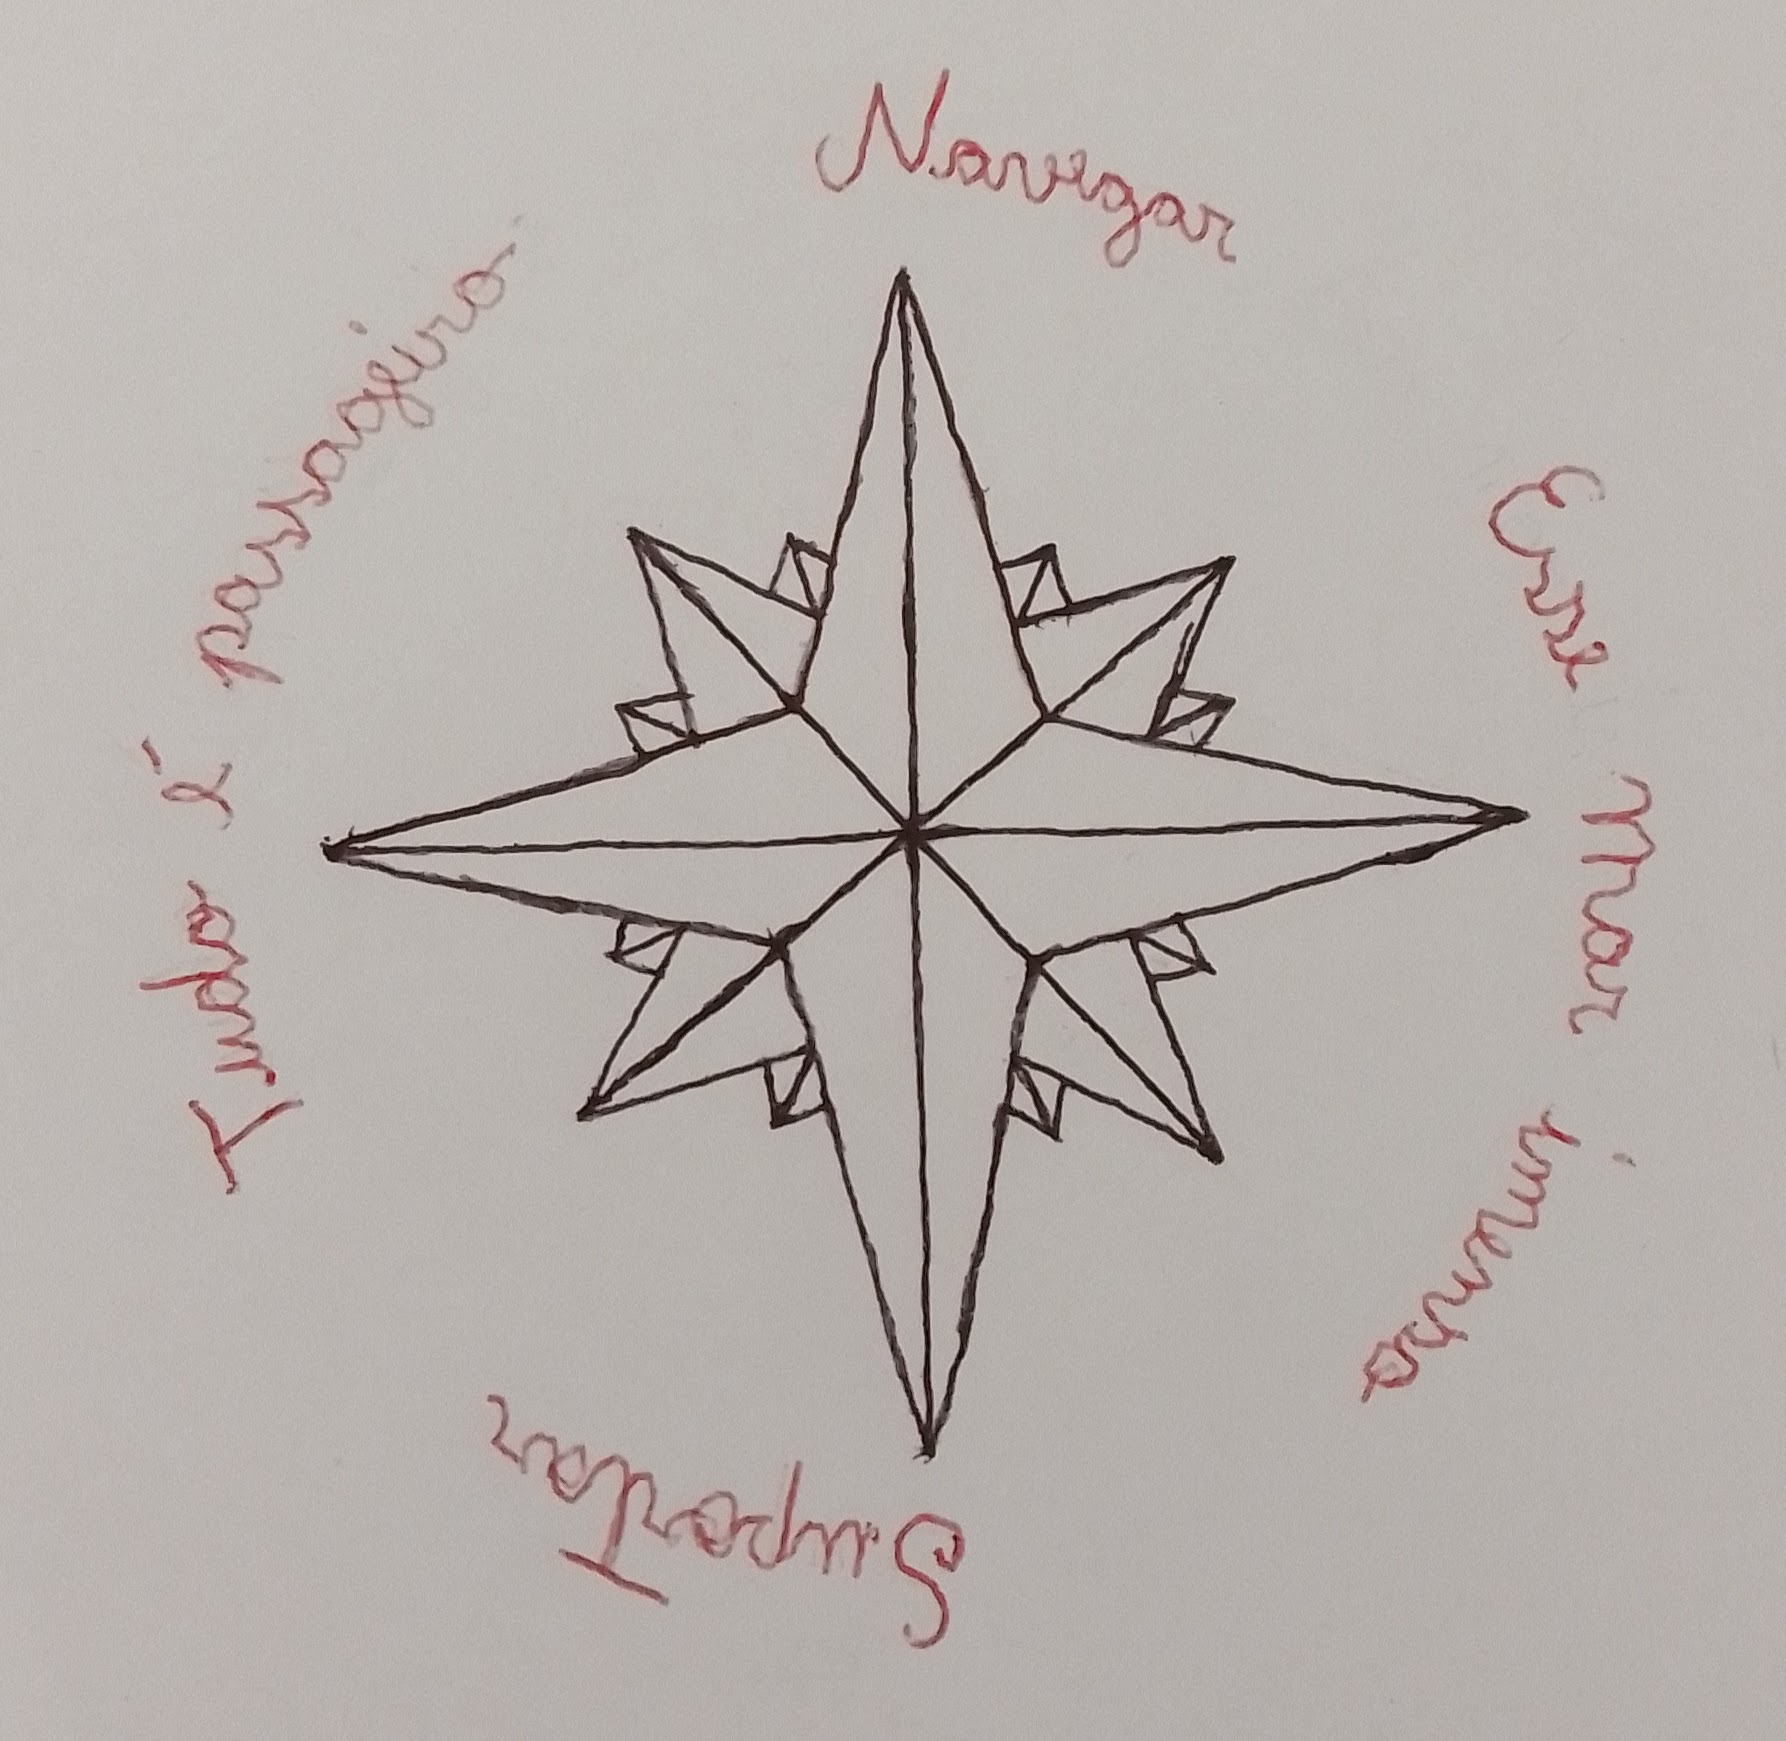 Navegar
Esse Mar imenso
Suportar
Tudo é passageiro